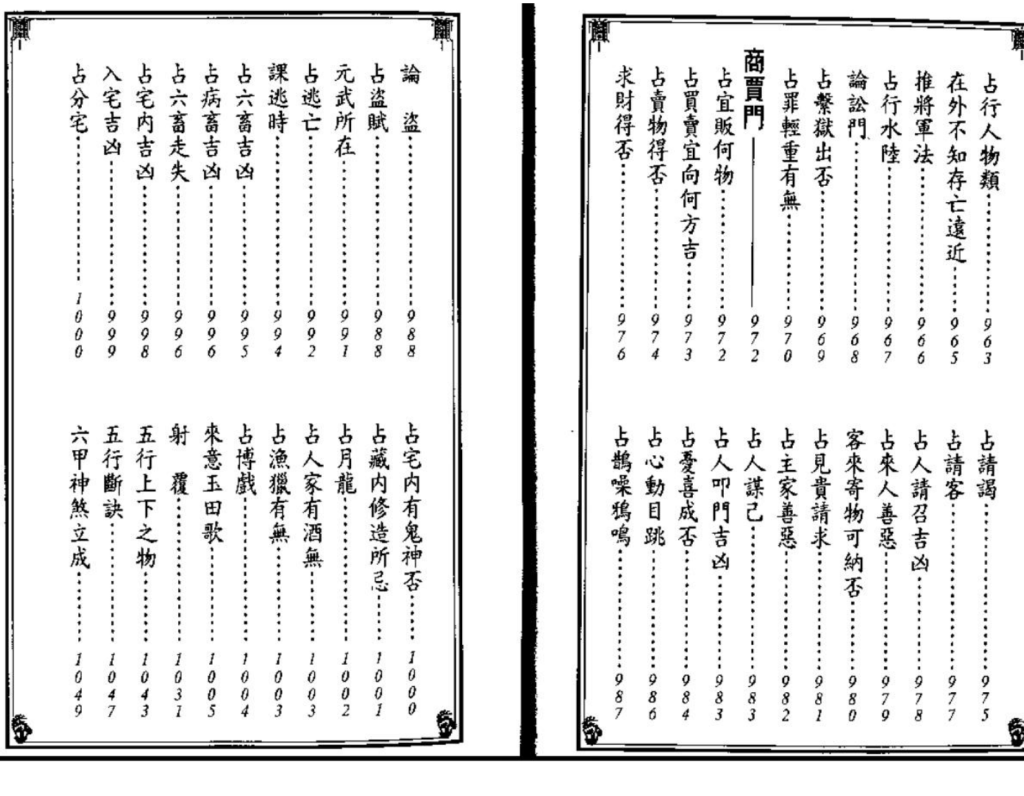 占行人物類……963
在外不知存亡遠近……965
推將軍法……966
占行水陸……967
論訟門……968
占繫獄出否……969
占罪輕重有無……970
商賈門——972
占宜販何物……972
占買賣宜向何方吉……973
占賣物得否……974
求財得否……976
占請謁……975
占請客……977
占人請召吉凶……978
占來人善惡……979
客來寄物可納否……980
占見貴請求……981
占主家善惡……982
占人謀己……983
占人叩門吉凶……983
占憂喜成否……984
占心動目跳……986
占鵲噪鴉鳴……987
論　盜……988
占盜賊……988
元武所在……991
占逃亡……992
課逃時……994
占六畜吉凶……995
占病畜吉凶……996
占六畜走失……996
占宅內吉凶……998
入宅吉凶……999
占分宅……1000
占宅內有鬼神否……1000
占藏內修造所忌……1001
占月龍……1002
占人家有酒無……1003
占漁獵有無……1003
占博戲……1004
來意玉田歌……1005
射　覆……1031
五行上下之物……1043
五行斷訣……1047
六甲神煞立成……1049